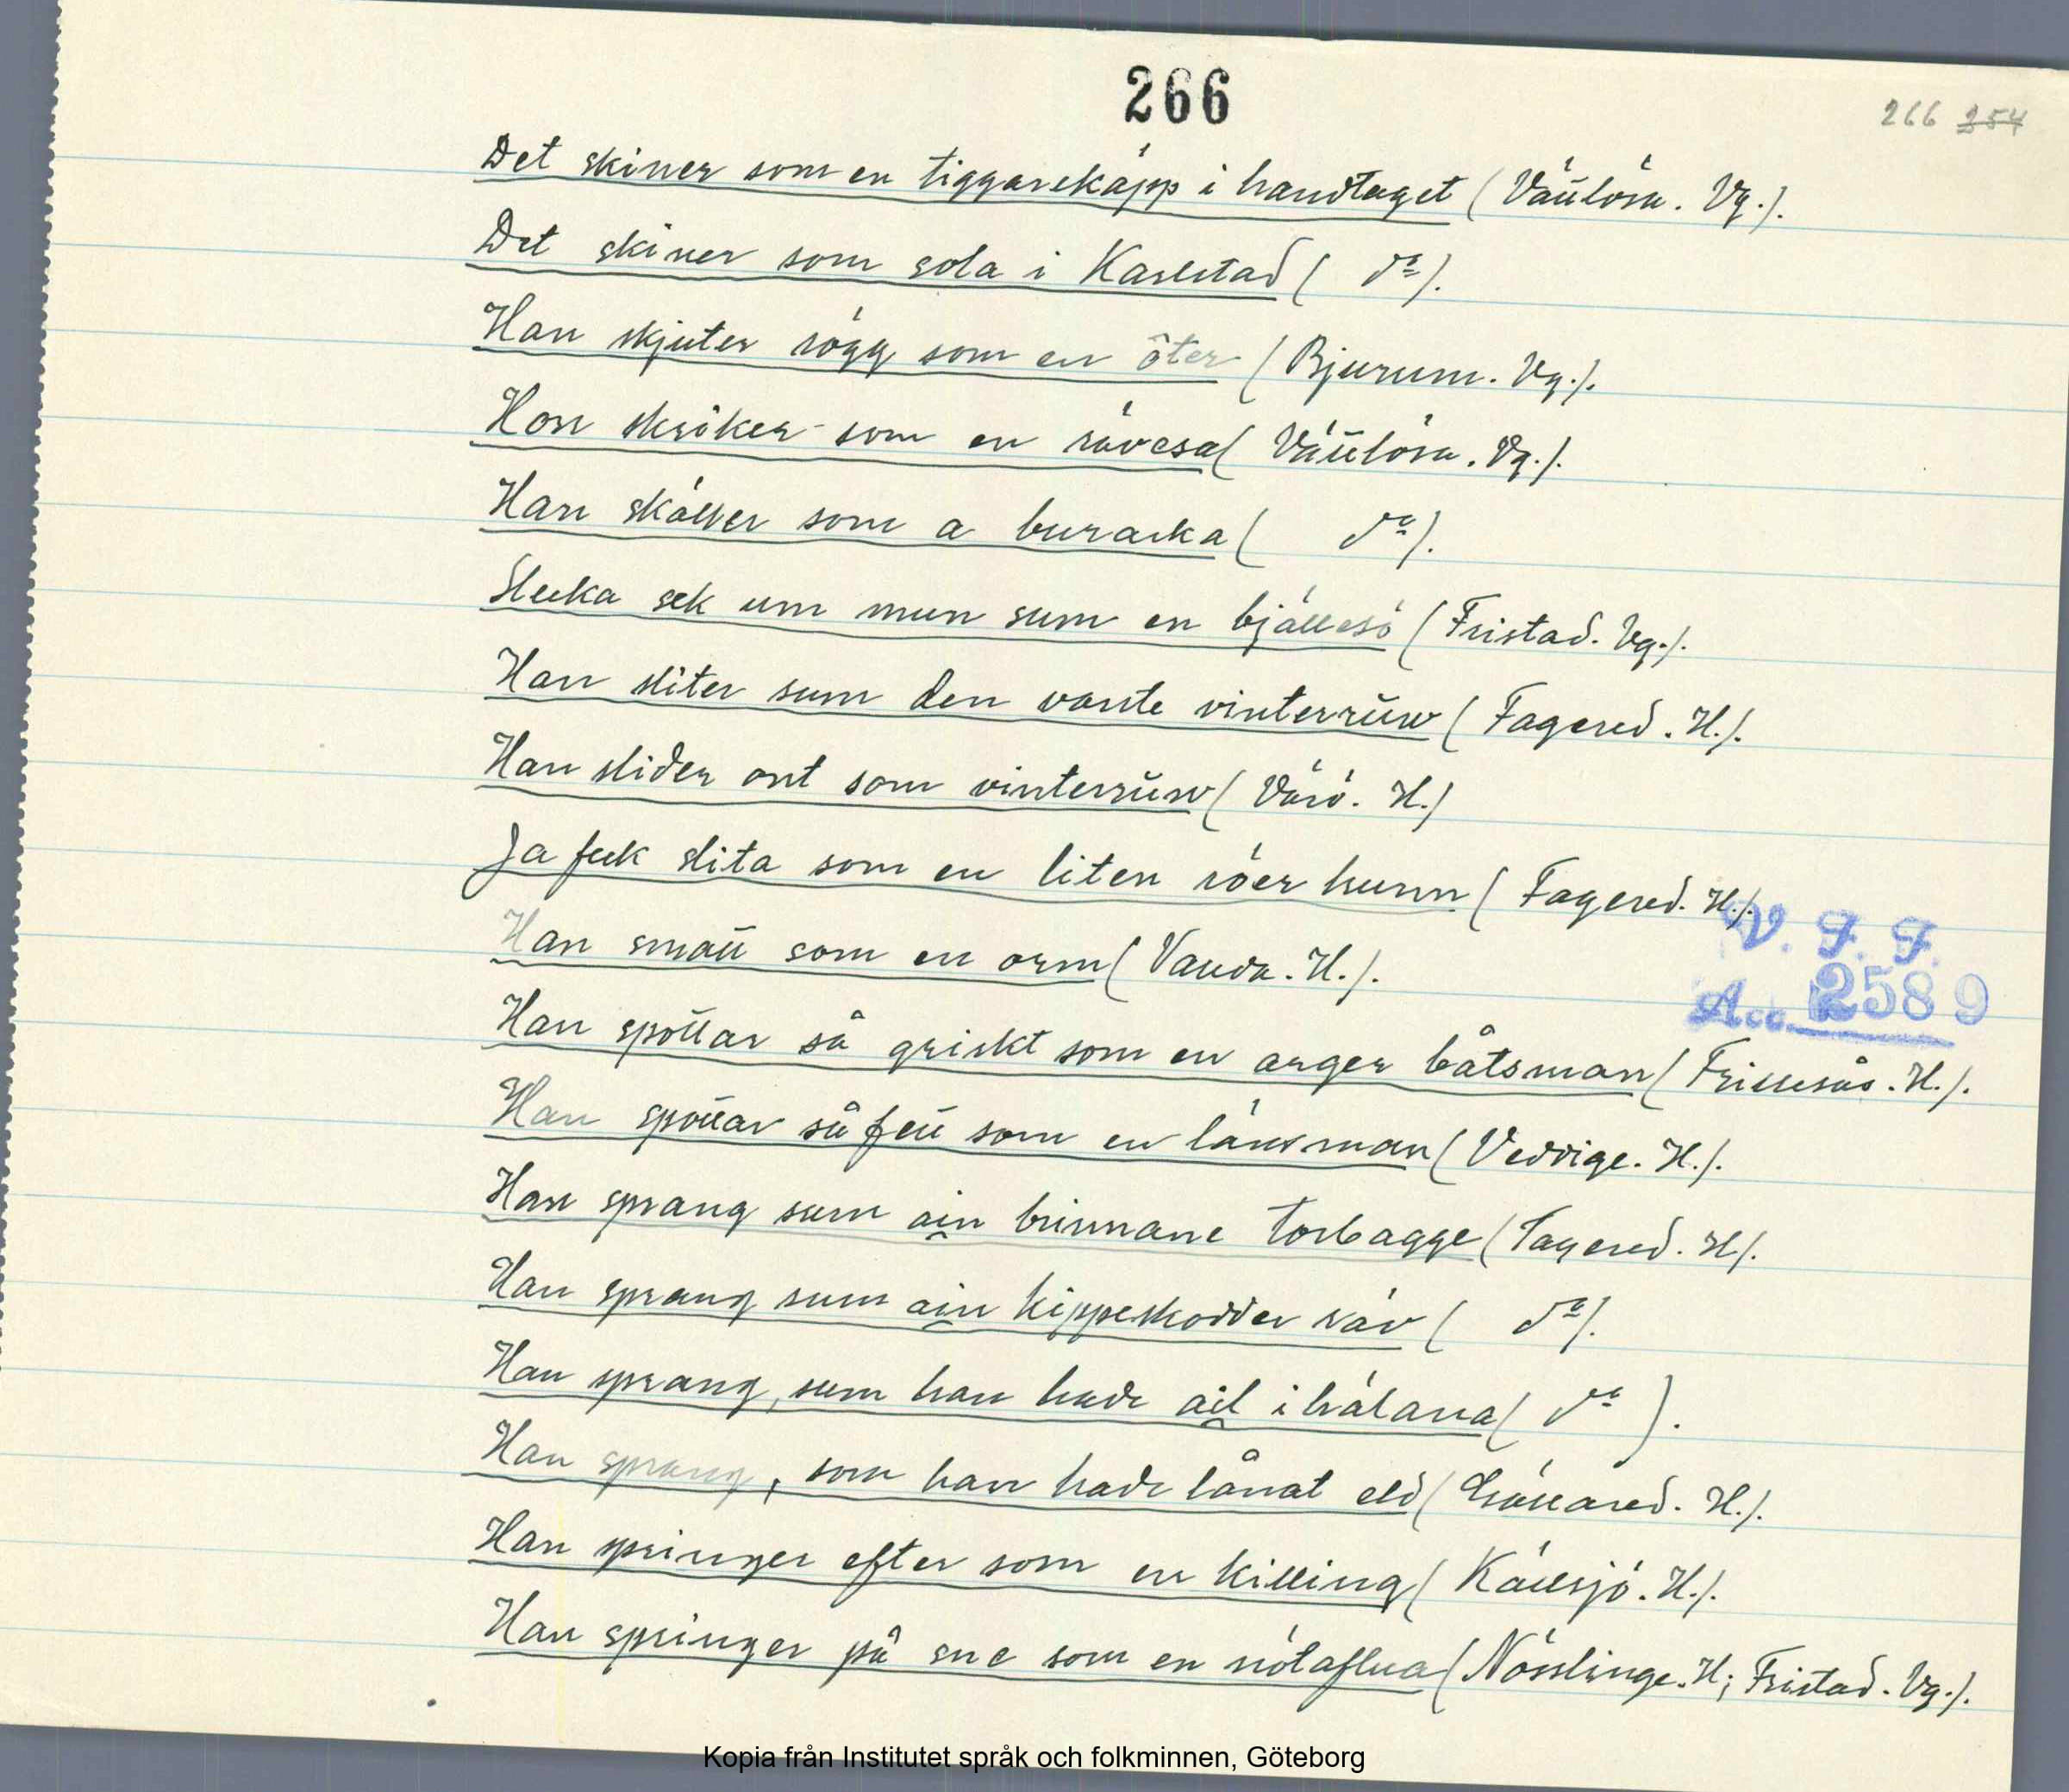 266
266 254
Det skiner som en tiggarekäpp i handtaget (Vättlösa. Vg.).
Det skiner som sola i Karlstad ( dº).
Han skjuter rögg som en öter (Bjurum. Vg.).
Hon skriker som en rävesa (Vättlösa. Vg.).
Han skäller som a buraska ( dº).
Slecka sek um mun sum en bjällesö (Fristad. Vg.).
Han sliter sum den vante vinterräw (Fagered. H.).
Han slider ont som vinterräw (Värö. H.)
Ja feck slita som en liten röer hunn (Fagered. H.).
Han smatt som en orm (Vanda. H.).
V. F. F.
Acc. 2589
Han spottar så griskt som en arger båtsman (Frillesås. H.).
Han spottar så fett som en länsman (Veddige. H.).
Han sprang sum ain brinnane torbagge (Fagered. H).
Han sprang sum ain kippeskodder räv ( dº).
Han sprang, sum han hade ail i hälana ( dº ).
Han sprang, som han hade lånat eld (Gällared. H.).
Han springer efter som en killing (Källsjö. H.).
Han springer på sne som en nötaflua (Nösslinge. H; Fristad. Vg.).
Kopia från Institutet språk och folkminnen, Göteborg